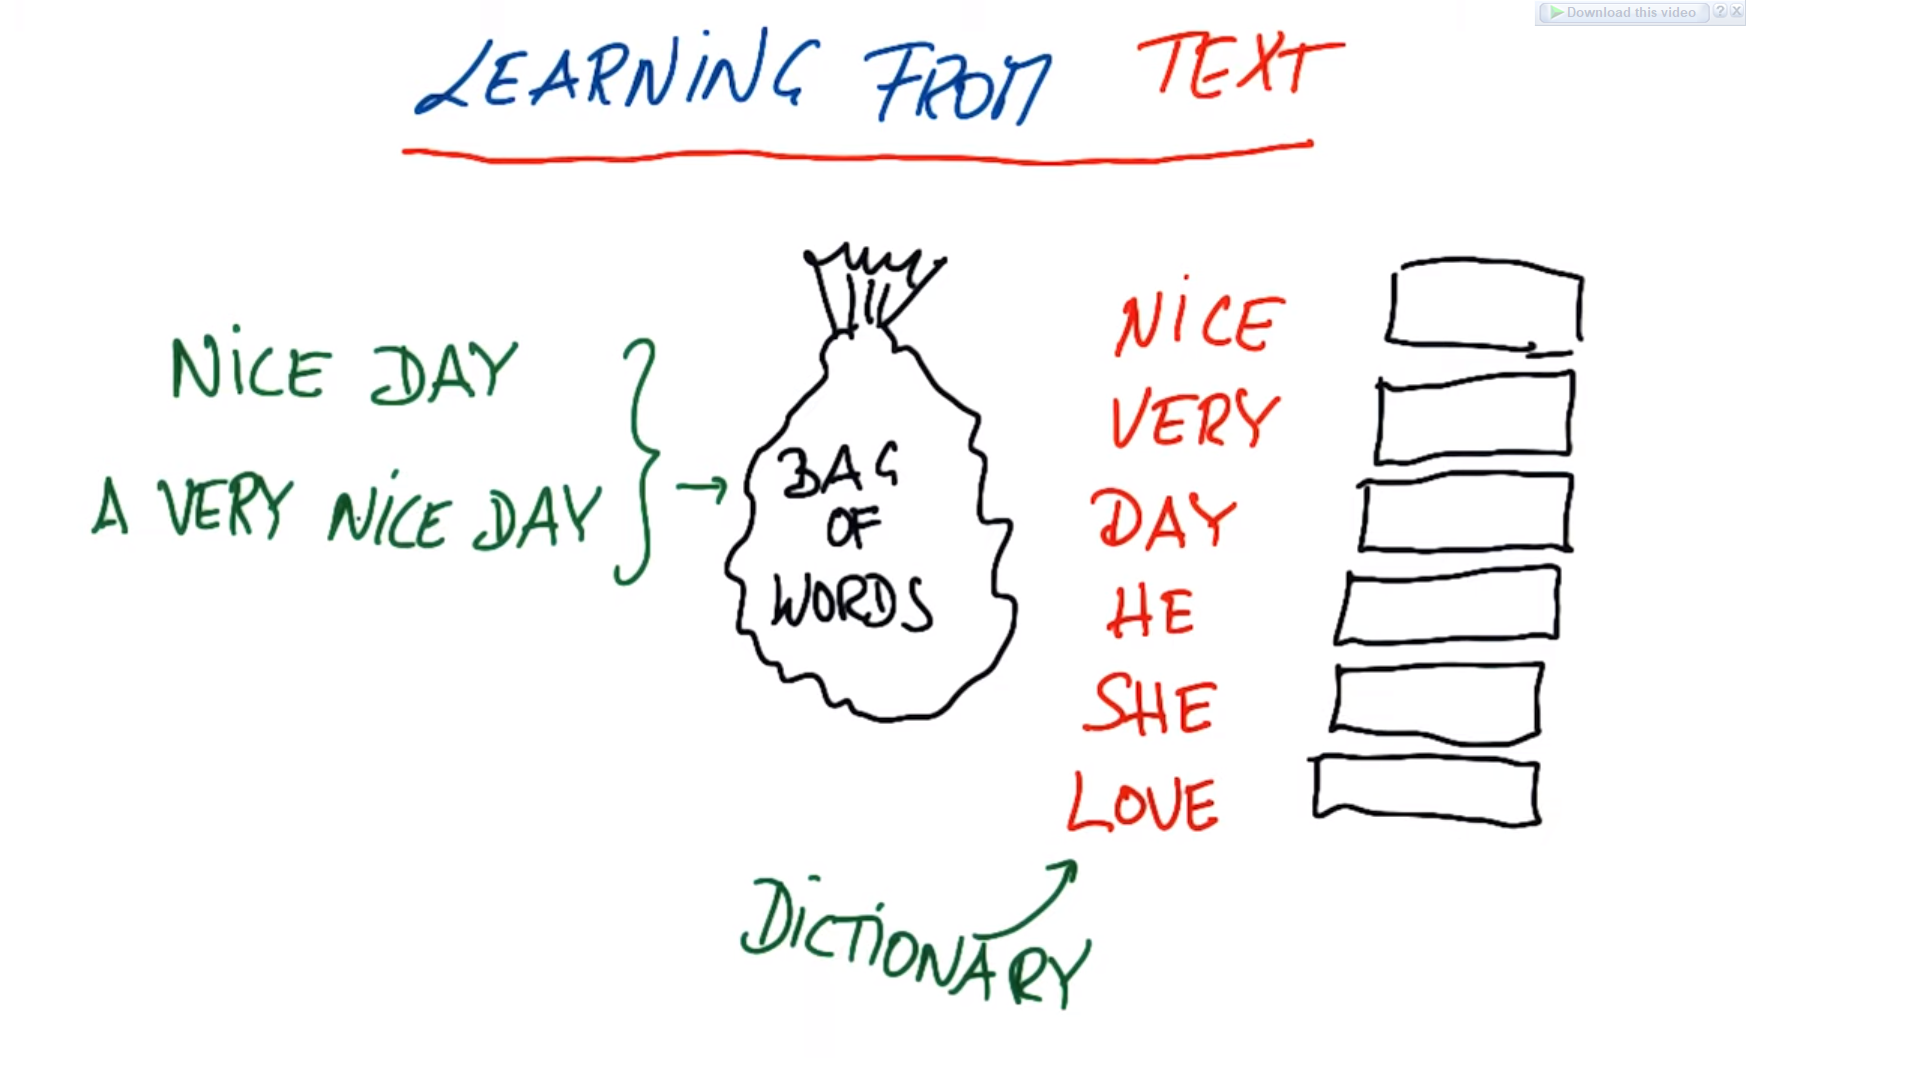 Download this video ? X
LEARNING FROM TEXT
NICE DAY
A VERY NICE DAY
BAG
OF
WORDS
NICE
VERY
DAY
HE
SHE
LOVE
DICTIONARY